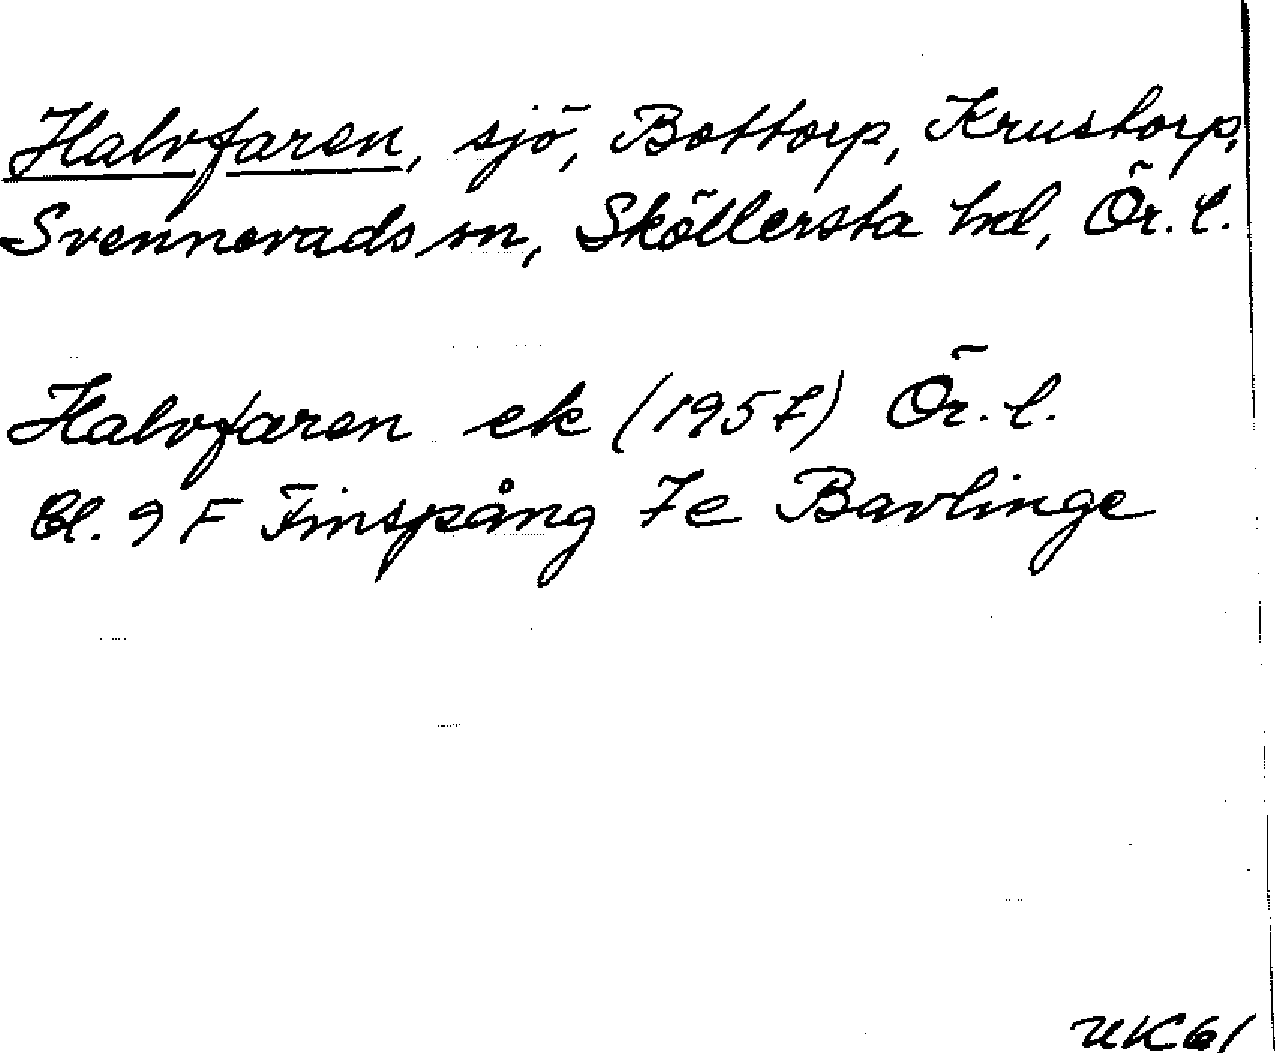 Halvfaren, sjö, Bottorp, Krustorp,
Svennevads sn, Sköllersta hd, Ör. l.
Halvfaren ek (1957) Ör. l.
Bl. 9 F Finspång 7e Bavlinge
UK61